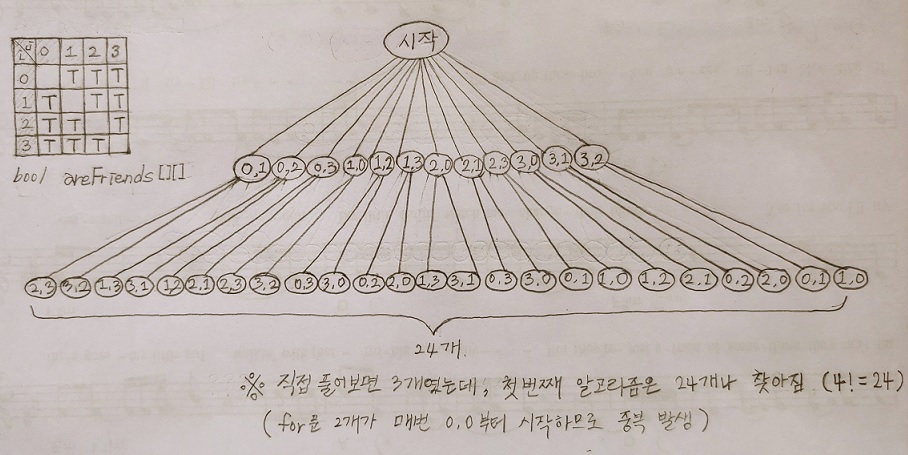 시작
i j 0 1 2 3
0 T T T
1 T T T
2 T T T
3 T T T
bool areFriends[][]
0,1 0,2 0,3 1,0 1,2 1,3 2,0 2,1 2,3 3,0 3,1 3,2
2,3 3,2 1,3 3,1 1,2 2,1 2,3 3,2 0,3 3,0 0,2 2,0 1,3 3,1 0,3 3,0 0,1 1,0 1,2 2,1 0,2 2,0 0,1 1,0
24개
※ 직접 풀어보면 3개였는데, 첫번째 알고리즘은 24개나 찾아짐 (4!=24)
(for문 2개가 매번 0,0부터 시작하므로 중복 발생)